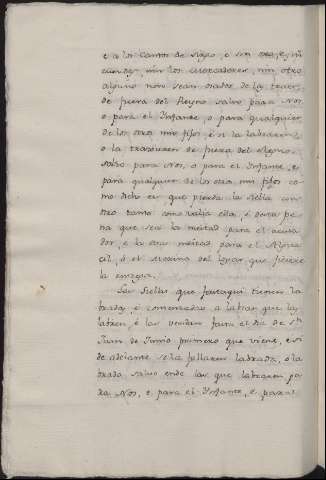 e a los Cantos de Siglo, e sin oro, e, nin
cuerdas, nin los Mercadores, nin otro
alguno non sean osados de la traer
de fuera del Reyno salvo para Nos
o para el Infante, o para qualquier
de los otros mis fijos, e si la labraren,
o la traxieren de fuera del Regno,
salvo para Nos, o para el Infante, e
para qualquier de los otros mis fijos co
mo dicho es que pierda la Siella con
otro tanto como valia ella, e desta pe
na que sea la meitad para el acusa
dor, e la otra meitad para el Algua
cil, o el Merino del logar que ficiere
la entrega.
Las Siellas que fastaqui tienen la
bradas, e comenzadas a labrar que las
labren, e las vendan fasta el dia de Sn
Juan de Junio primero que viene, e si
de adelante se la fallaren labrada, o la
brada, salvo ende las que labraren pa
ra Nos, e para el Infante, e para